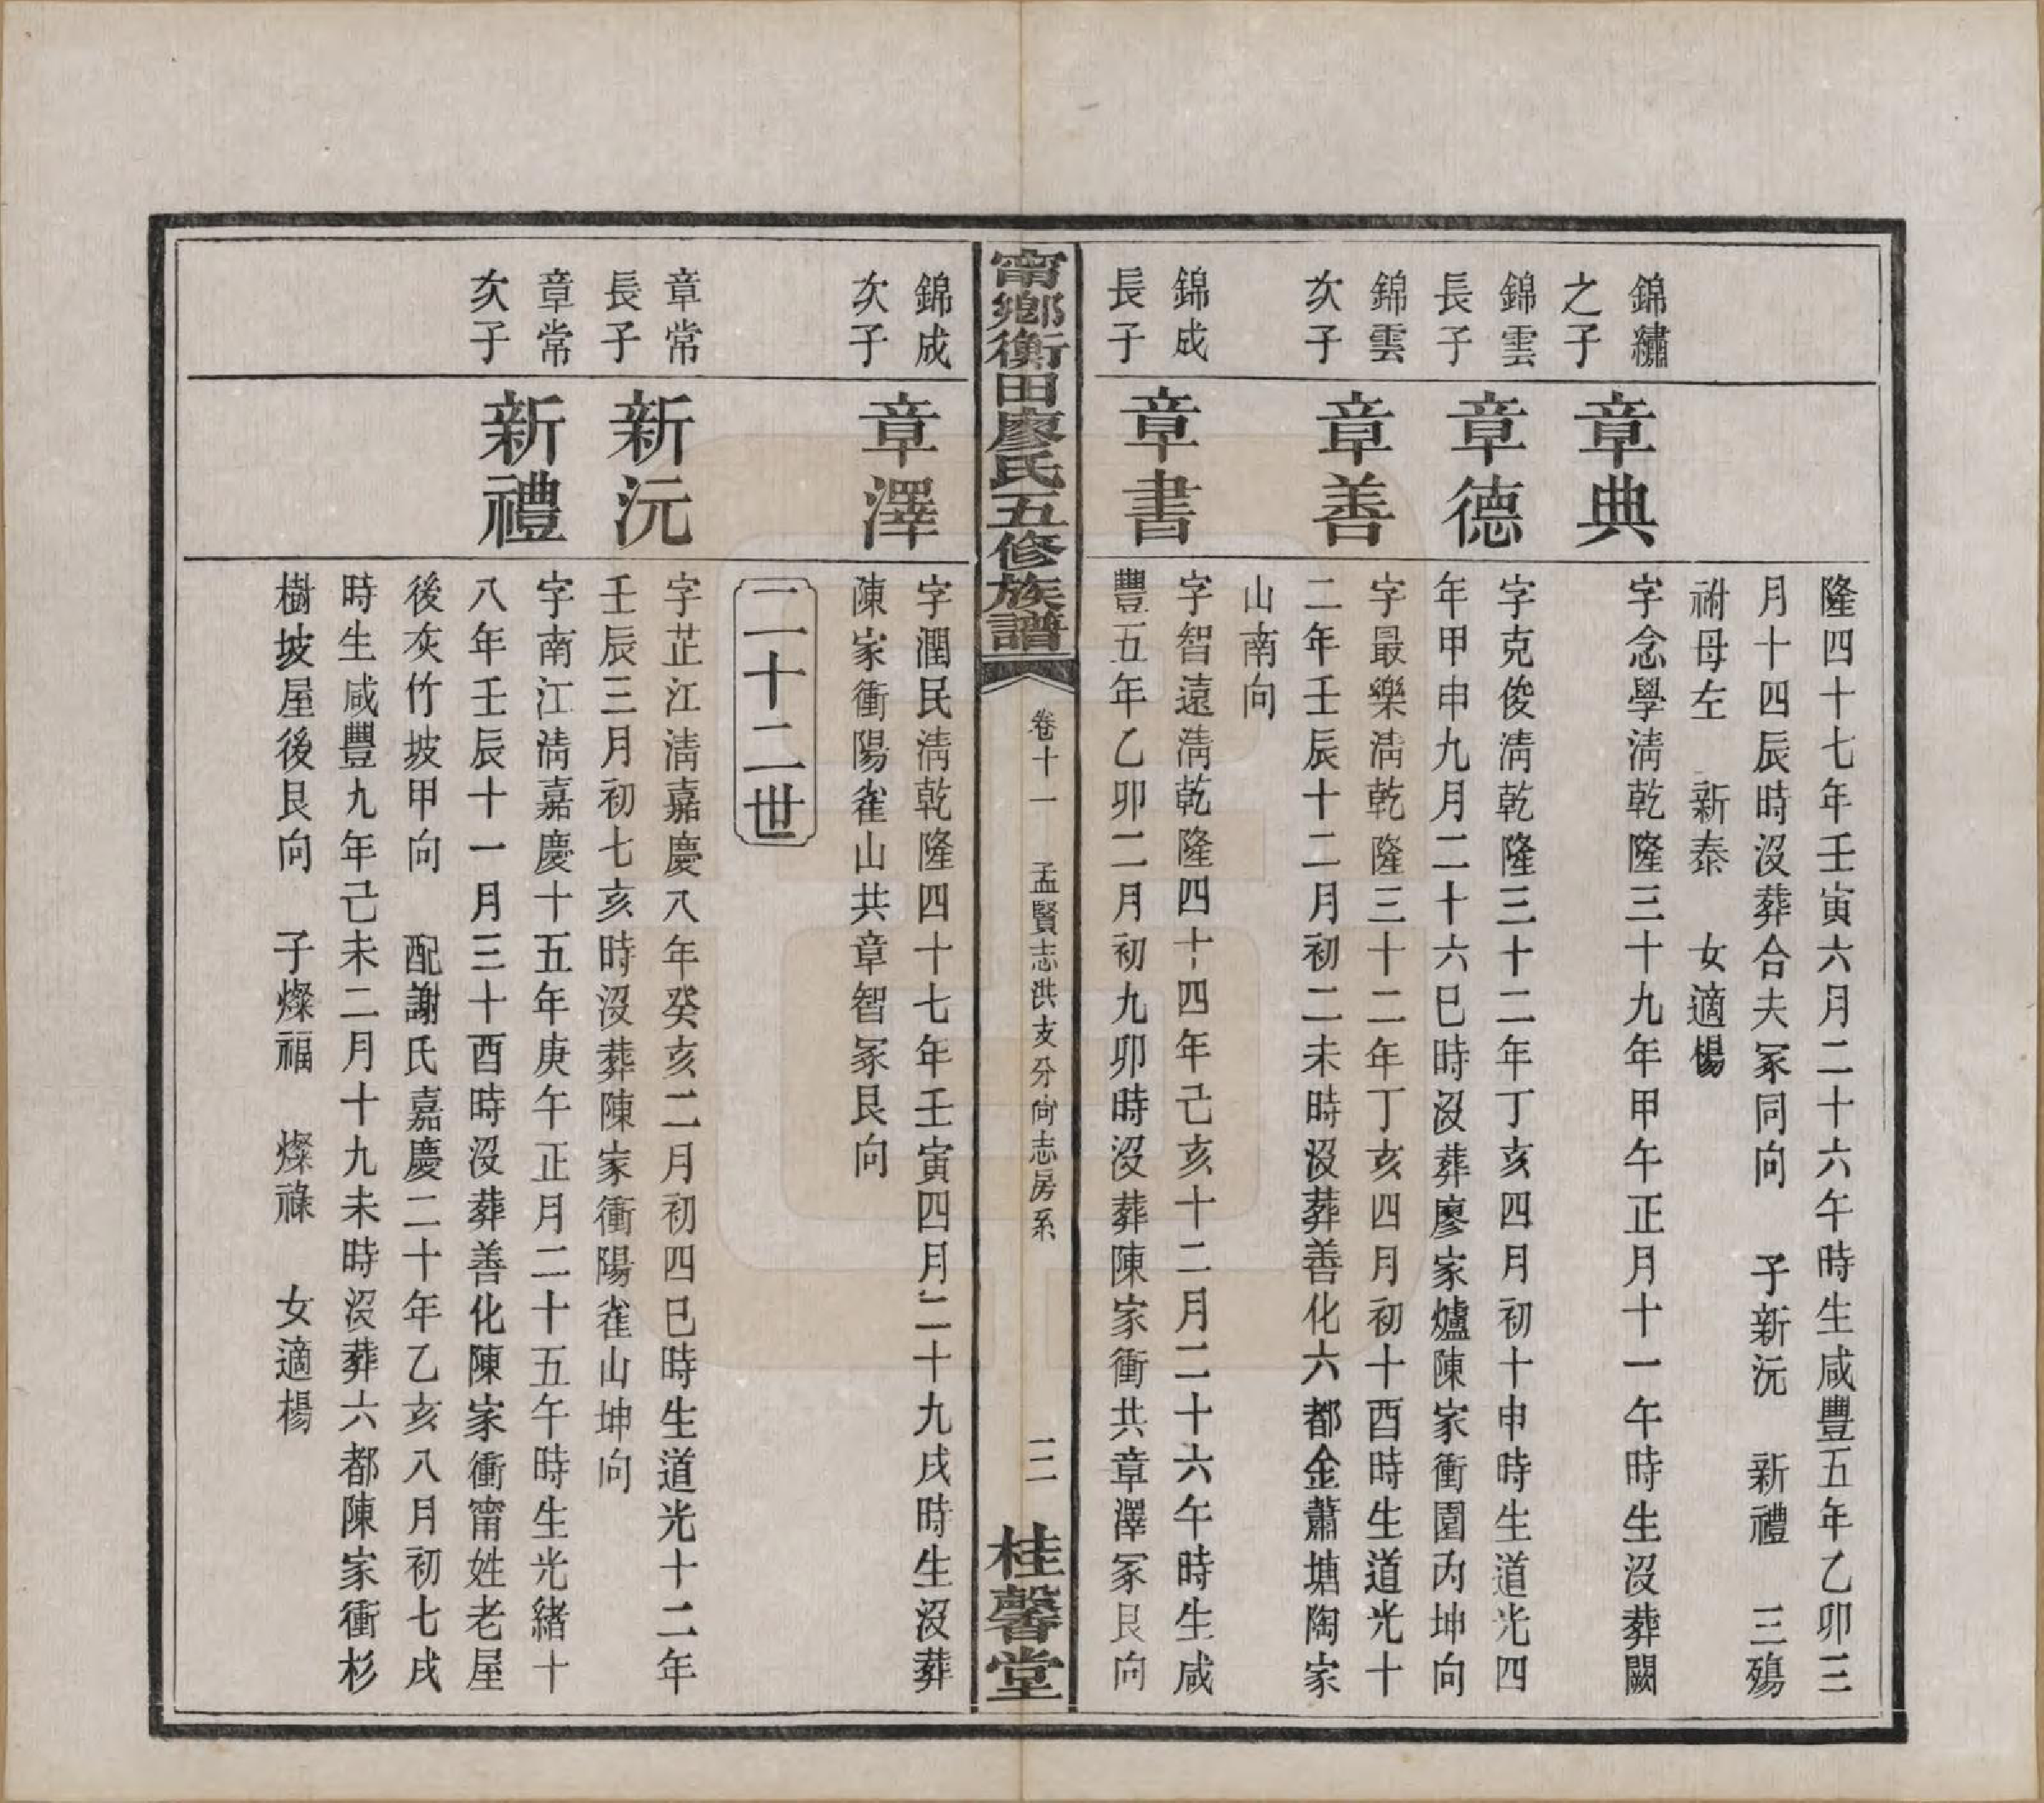 隆四十七年壬寅六月二十六午時生咸豐五年乙卯三
月十四辰時沒葬合夫冢同向　子新沅　新禮　三殤
祔母左　新泰　女適楊
錦繡
之子
章典
字念學淸乾隆三十九年甲午正月十一午時生沒葬闕
錦雲
長子
章德
字克俊淸乾隆三十二年丁亥四月初十申時生道光四
年甲申九月二十六巳時沒葬廖家爐陳家衝園內坤向
錦雲
次子
章善
字最樂淸乾隆三十二年丁亥四月初十酉時生道光十
二年壬辰十二月初二未時沒葬善化六都金蕭塘陶家
山南向
錦成
長子
章書
字智遠淸乾隆四十四年己亥十二月二十六午時生咸
豐五年乙卯二月初九卯時沒葬陳家衝共章澤冢艮向
甯鄉衡田廖氏五修族譜
卷十一　孟賢志洪支分尙志房系
二
桂馨堂
錦成
次子
章澤
字潤民淸乾隆四十七年壬寅四月二十九戌時生沒葬
陳家衝陽雀山共章智冢艮向
二十二世
章常
長子
新沅
字芷江淸嘉慶八年癸亥二月初四巳時生道光十二年
壬辰三月初七亥時沒葬陳家衝陽雀山坤向
章常
次子
新禮
字南江淸嘉慶十五年庚午正月二十五午時生光緖十
八年壬辰十一月三十酉時沒葬善化陳家衝甯姓老屋
後灰竹坡甲向　配謝氏嘉慶二十年乙亥八月初七戌
時生咸豐九年己未二月十九未時沒葬六都陳家衝杉
樹坡屋後艮向　子燦福　燦祿　女適楊